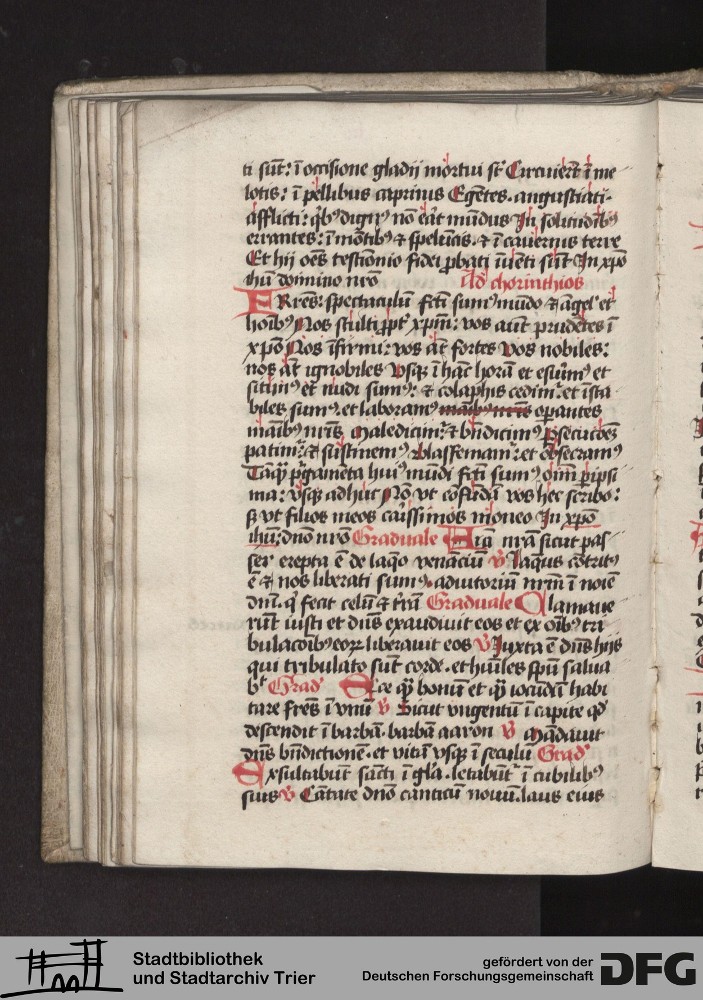 ti sūt: ī occisione gladij mortui st̄ Circuierūt ī me
lotis: ī pellibus caprinis Egentes. angustiati.
afflicti: qͥbꝰ dignꝰ nō erāt mūdus In solitudībꝰ
errantes: ī mōtibꝰ ⁊ speluncis. ⁊ ī cavernis terre
Et hij oēs testīonio fidei ꝓbati īuēti sūt In xp̄o
ihū domino nrō Ad chorinthios
FRrēs: spectaculū fcti sumꝰ mūdo ⁊ āgelꝭ et
hoībꝰ Nos stulti ꝓpt̄ xp̄m: vos aūt prudētes ī
xp̄o Nos īfirmi: vos āt fortes Vos nobiles:
nos āt ignobiles Vsqꝫ ī hāc horā et esurimꝰ et
sitimꝰ et nudi sumꝰ: ⁊ colaphis cedimr̄ et īsta
biles sumꝰ. et laboramꝰ maībꝰ nrīs opantes
māibꝰ nrīs Maledicimr̄ ⁊ bn̄dicimꝰ Psecucōes
patimr̄ ⁊ sustinemꝰ Blasfemamr̄ et obsecramꝰ
Tāqꝫ p̄gameta huiꝰ mūdi fcti sumꝰ. oīm pipsi
ma: vsqꝫ adhuc Nō vt cōfūdā vos hec scribo:
sꝫ vt filios meos carissimos moneo In xp̄o
ihū: dno nrō Graduale Aīa nrā sicut pas
ser erepta ē de laqͦo venanciū V Laqueus cōtritꝰ
ē ⁊ nos liberati sumꝰ. adiutoriū nrm̄ ī noīe
dnī. qͥ fecit celū ⁊ t̄rā Graduale Clamaue
rūt iusti et dn̄s exaudiuit eos et ex oībꝰ tri
bulacōibꝰ eoꝝ liberauit eos V Juxta ē dn̄s hijs
qui tribulato sūt corde. et hūiles spū salua
bᵗ Gradͣ Ecce qͣ bonū et qͣ iocūdū habi
tare frēs ī vnū V Sicut vngentū ī capite qd̄
descendit ī barbā. barbā aaron V Mādauit
dn̄s bn̄dictionē. et vitā vsqꝫ ī seculū Gradͣ
Exsultabūt sācti ī gl̄a. letabūt̄ ī cubilibꝰ
suis V Cātate dnō canticū nouū. laus eius
Stadtbibliothek
und Stadtarchiv Trier
gefördert von der
Deutschen Forschungsgemeinschaft
DFG